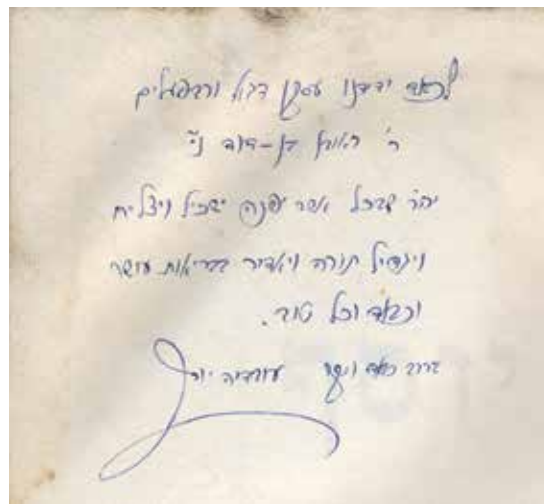 לכבוד ידידנו עסקן דגול ורב פעלים
ר' ראובן בן-דוד ני"ו
יה"ר שבכל אשר יפנה ישכיל ויצליח
ויגדיל תורה ויאדיר בבריאות עושר
וכבוד וכל טוב.
ברוב כבוד ויקר עובדיה יוסף